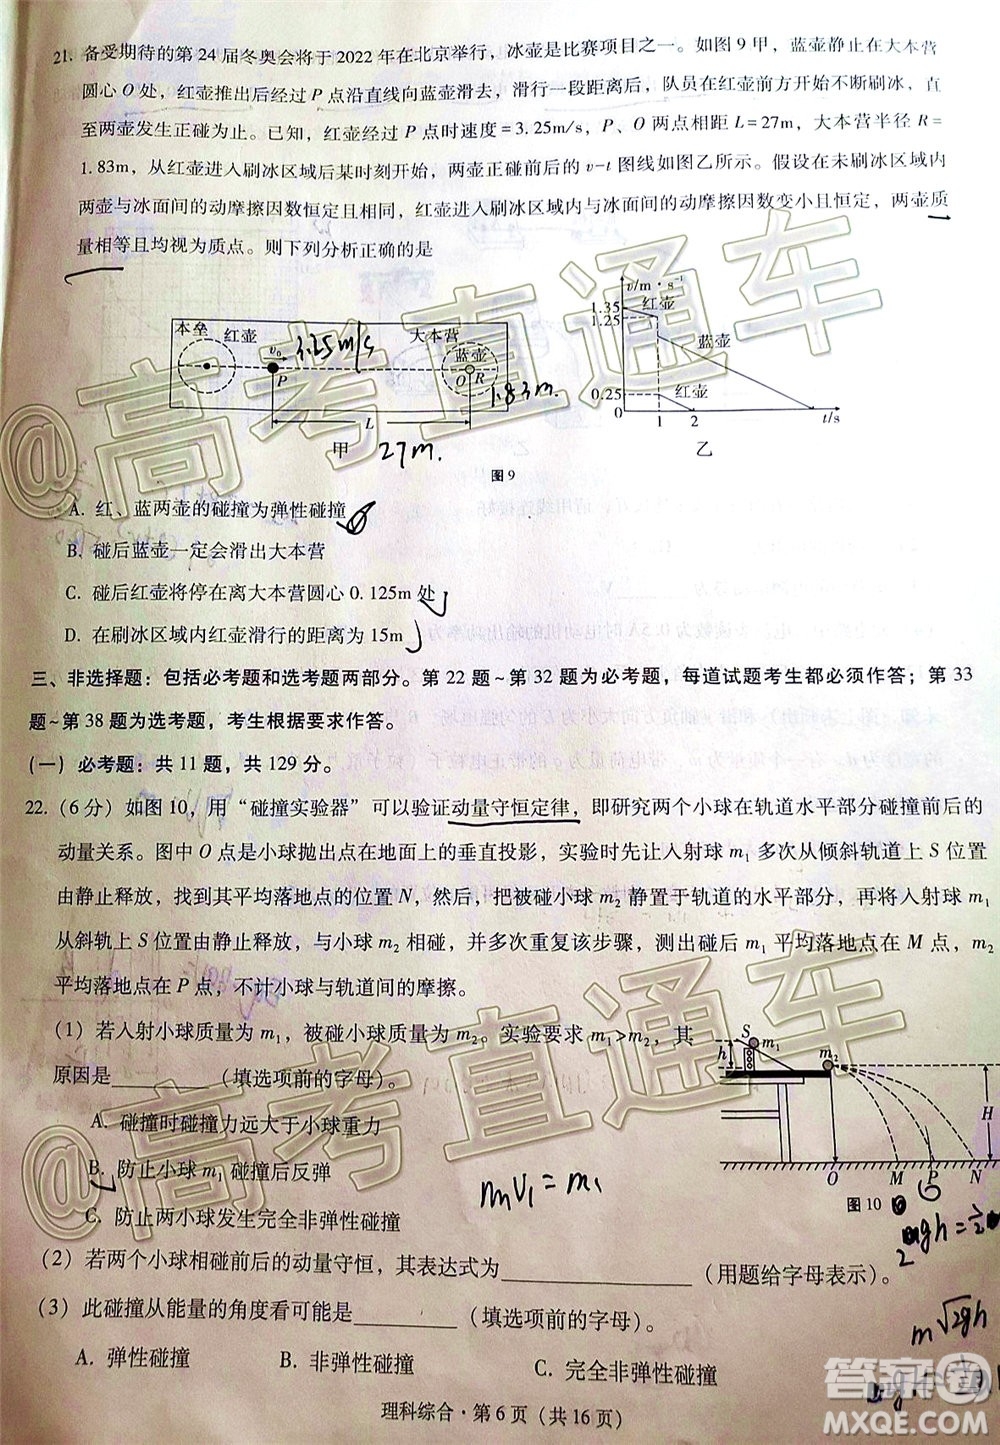 21. 备受期待的第 24 届冬奥会将于 2022 年在北京举行，冰壶是比赛项目之一。如图 9 甲，蓝壶静止在大本营
圆心 O 处，红壶推出后经过 P 点沿直线向蓝壶滑去，滑行一段距离后，队员在红壶前方开始不断刷冰，直
至两壶发生正碰为止。已知，红壶经过 P 点时速度=3.25m/s，P、O 两点相距 L=27m，大本营半径 R=
1.83m，从红壶进入刷冰区域后某时刻开始，两壶正碰前后的 v-t 图线如图乙所示。假设在未刷冰区域内
两壶与冰面间的动摩擦因数恒定且相同，红壶进入刷冰区域内与冰面间的动摩擦因数变小且恒定，两壶质
量相等且均视为质点。则下列分析正确的是
本垒 红壶 大本营 蓝壶
v₀ P O R
3.25m/s
1.83m.
L
甲
27m.
v/m·s⁻¹
1.35 红壶
1.25
蓝壶
0.25 红壶
0 1 2 t/s
乙
图 9
A. 红、蓝两壶的碰撞为弹性碰撞
B. 碰后蓝壶一定会滑出大本营
C. 碰后红壶将停在离大本营圆心 0.125m 处
D. 在刷冰区域内红壶滑行的距离为 15m
三、非选择题：包括必考题和选考题两部分。第 22 题~第 32 题为必考题，每道试题考生都必须作答；第 33
题~第 38 题为选考题，考生根据要求作答。
(一) 必考题：共 11 题，共 129 分。
22. (6 分) 如图 10，用“碰撞实验器”可以验证动量守恒定律，即研究两个小球在轨道水平部分碰撞前后的
动量关系。图中 O 点是小球抛出点在地面上的垂直投影，实验时先让入射球 m₁ 多次从倾斜轨道上 S 位置
由静止释放，找到其平均落地点的位置 N，然后，把被碰小球 m₂ 静置于轨道的水平部分，再将入射球 m₁
从斜轨上 S 位置由静止释放，与小球 m₂ 相碰，并多次重复该步骤，测出碰后 m₁ 平均落地点在 M 点，m₂
平均落地点在 P 点，不计小球与轨道间的摩擦。
(1) 若入射小球质量为 m₁，被碰小球质量为 m₂。实验要求 m₁>m₂，其
原因是________（填选项前的字母）。
A. 碰撞时碰撞力远大于小球重力
B. 防止小球 m₁ 碰撞后反弹
C. 防止两小球发生完全非弹性碰撞
S m₁ h m₂ H
O M P N
图 10
(2) 若两个小球相碰前后的动量守恒，其表达式为____________（用题给字母表示）。
(3) 此碰撞从能量的角度看可能是________（填选项前的字母）。
m√2gh
A. 弹性碰撞 B. 非弹性碰撞 C. 完全非弹性碰撞
理科综合·第 6 页（共 16 页）
@高考直通车
@高考直通车
答案圈
MXQE.COM